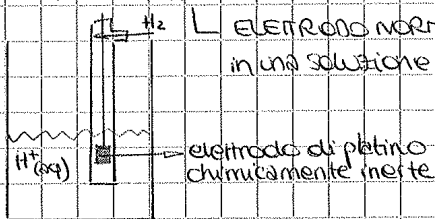 H₂
ELETTRODO NOR
in una soluzione
H⁺(aq)
elettrodo di platino
chimicamente inerte